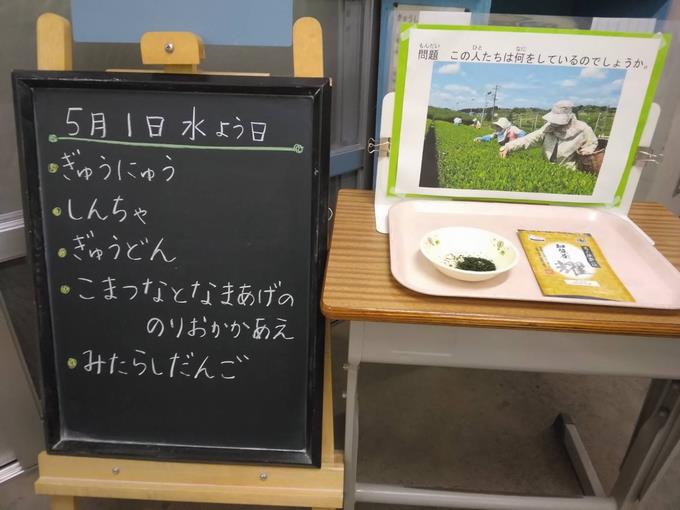 5月1日 水よう日
ぎゅうにゅう
しんちゃ
ぎゅうどん
こまつなとなまあげの
のりおかかあえ
みたらしだんご
もんだい ひと なに
問題 この人たちは何をしているのでしょうか。